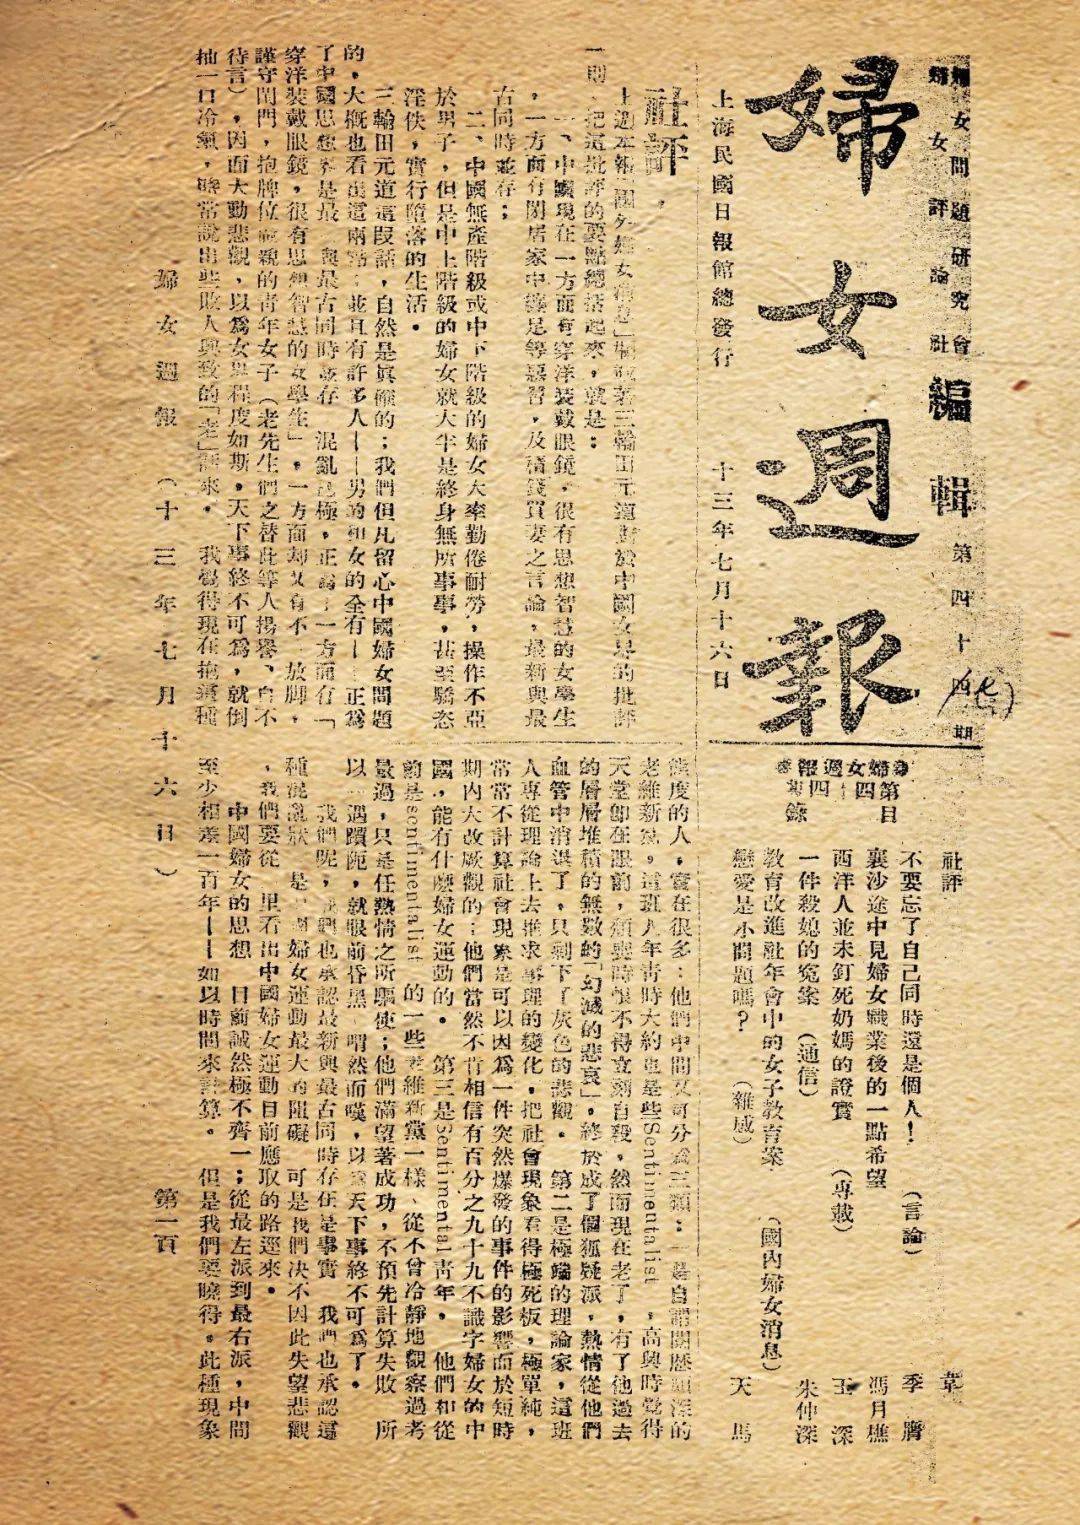 婦女問題研究會
婦女評論社
編輯
第四十四期
(七)
婦女週報
上海民國日報館總發行
十三年七月十六日
婦女週報第四四期目錄
社評 韋
不要忘了自己同時還是個人！（言論） 季膺
襄沙途中見婦女職業後的一點希望 馮月樵
西洋人並未釘死奶媽的證實（專載） 玉深
一件殺媳的寃案（通信） 朱仲深
教育改進社年會中的女子教育案（國內婦女消息）
戀愛是小問題嗎？（雜感） 天馬
社評
上週本報「國外婦女消息」欄載第三輪田元道對於中國女界的批評
一則、把這批評的要點總括起來，就是：
一、中國現在一方面有穿洋裝戴眼鏡，很有思想智慧的女學生
，一方面有閉居家中纏足等惡習，及積錢買妻之言論，最新與最
古同時並存；
二、中國無產階級或中下階級的婦女大率勤倦耐勞，操作不亞
於男子，但是中上階級的婦女就大半是終身無所事事，甚至驕恣
淫佚，實行墮落的生活。
三輪田元道這段話，自然是眞確的；我們但凡留心中國婦女問題
的，大概也看出這兩點；並且有許多人——男的和女的全有——正爲
了中國思想界是最 與最古同時並存 混亂已極，正 ：一方面有「
穿洋裝戴眼鏡，很有思想智慧的女學生」，一方面却又有不 放脚，
謹守閨門，抱牌位 親的靑年女子（老先生們之替此等人揚譽、自不
待言），因而大動悲觀，以爲女界程度如斯，天下事終不可爲，就倒
抽一口冷氣，時常說出些敗人興致的「老」話來。 我覺得現在抱這種
態度的人，實在很多：他們中間又可分爲三類：一是自謂閱歷頗深的
老維新黨，這班人年靑時大約也是些Sentimentalist，高興時覺得
天堂卽在眼前，頹喪時恨不得立刻自殺，然而現在老了，有了他過去
的層層堆積的無數的「幻滅的悲哀」，終於成了個狐疑派，熱情從他們
血管中消退了，只剩下了灰色的悲觀。 第二是極端的理論家，這班
人專從理論上去推求事理的變化，把社會現象看得極死板，極單純，
常常不計算社會現象是可以因爲一件突然爆發的事件的影響而於短時
期內大改厥觀的：他們當然不肯相信有百分之九十九不識字婦女的中
國，能有什麽婦女運動的。 第三是Sentimental靑年。 他們和從
前是sentimentalist 的一些老維新黨一樣、從不曾冷靜地觀察過考
量過，只是任熱情之所驅使；他們滿望著成功，不預先計算失敗 所
以一遇躓阨，就眼前昏黑 喟然而嘆，以爲天下事終不可爲了。
我們呢，我們也承認最新與最古同時存在是事實 我們也承認這
種混亂狀 是 國婦女運動最大的阻礙 可是我們决不因此失望悲觀
，我們要從 里看出中國婦女運動目前應取的路逕來。
中國婦女的思想 目前誠然極不齊一；從最左派到最右派，中間
至少相差一百年——如以時間來計算。 但是我們要曉得，此種現象
婦女週報（十三年七月十六日） 第一頁